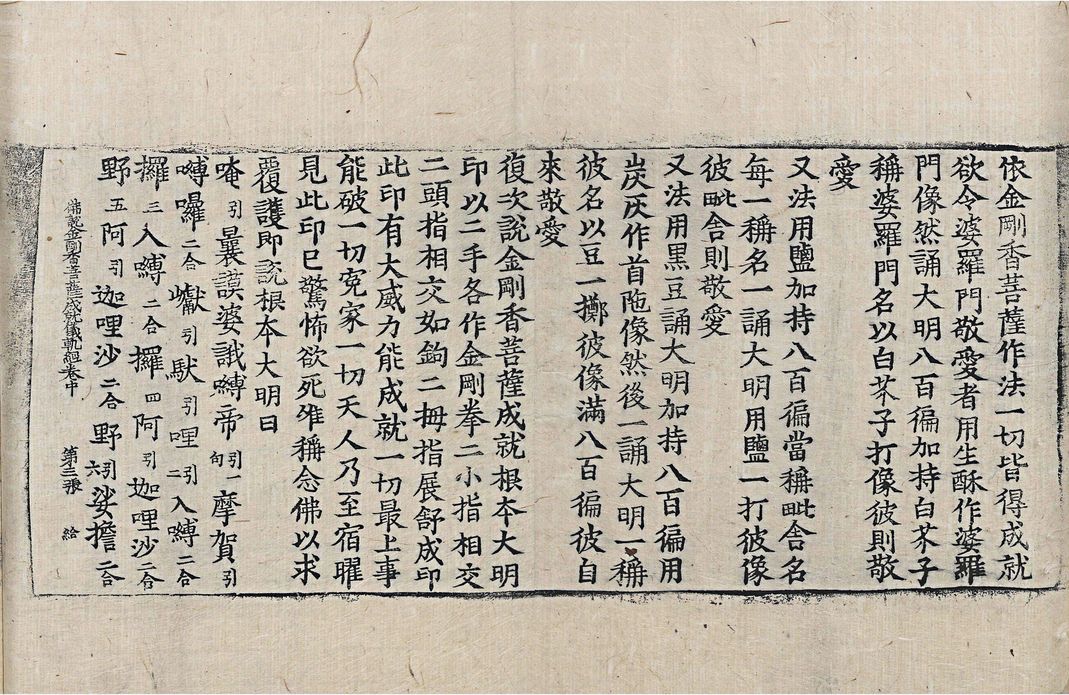 依金剛香菩薩作法一切皆得成就
欲令婆羅門敬愛者用生酥作婆羅
門像然誦大明八百徧加持白芥子
稱婆羅門名以白芥子打像彼則敬
愛
又法用鹽加持八百徧當稱毗舍名
每一稱名一誦大明用鹽一打彼像
彼毗舍則敬愛
又法用黒豆誦大明加持八百徧用
炭灰作首陁像然後一誦大明一稱
彼名以豆一擲彼像滿八百徧彼自
來敬愛
復次說金剛香菩薩成就根本大明
印以二手各作金剛拳二小指相交
二頭指相交如鉤二拇指展舒成印
此印有大威力能成就一切最上事
能破一切寃家一切天人乃至宿曜
見此印已驚怖欲死唯稱念佛以求
覆護即說根本大明曰
唵引曩謨婆誐嚩帝引一句摩賀引
嚩囉二合巘引馱引哩引二入嚩二合
攞三入嚩二合攞四阿引迦哩沙二合
野五阿引迦哩沙二合野引六娑擔二合
佛說金剛香菩薩成就儀軌經卷中 第三張 給